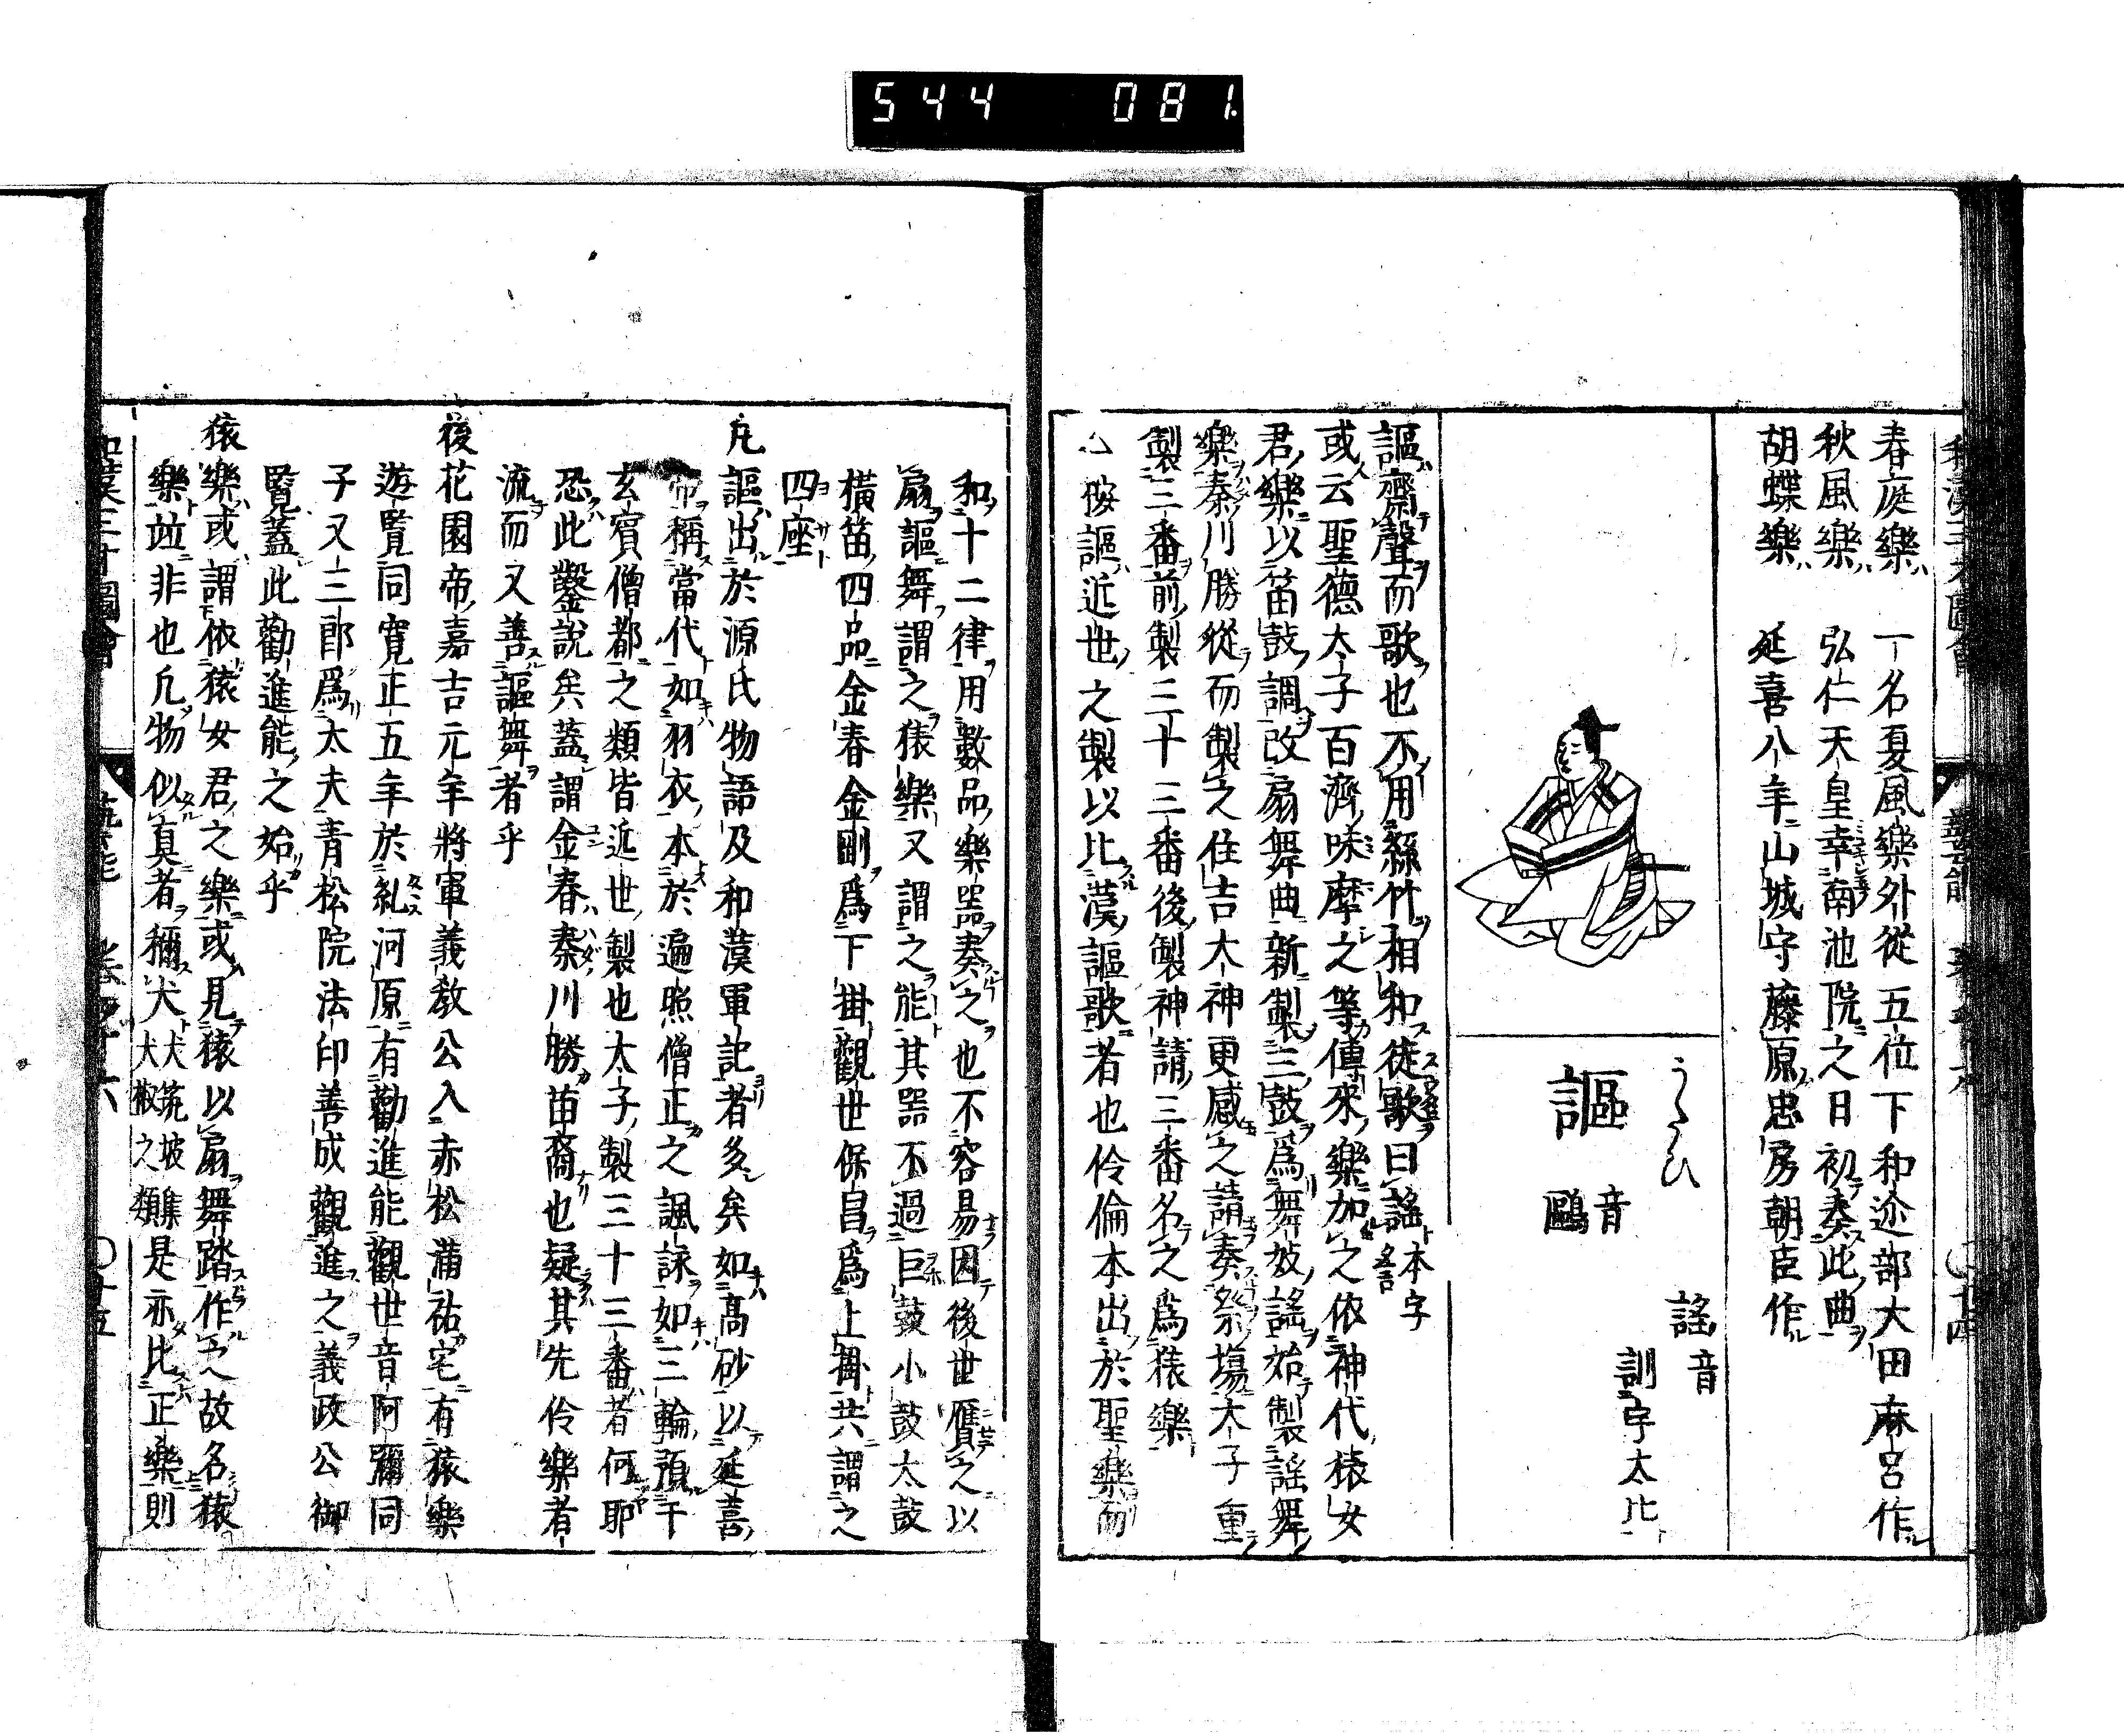 544 081
春庭樂 一名夏風樂外從五位下和迩部大田麻呂作
秋風樂 弘仁天皇幸南池院之日初奏此曲
胡蝶樂 延喜八年山城守藤原忠房朝臣作
うたひ
謳 音鷗
謠音
訓宇太比
謳齋聲而歌也不用絲竹相和徒歌曰謠本字䚻
或云聖德太子百濟味摩之等傳來樂加之依神代猿女
君樂以笛鼓調改扇舞曲新製三鼓爲舞妓謠始製謠舞
樂秦川勝從而製之住吉大神更感之請奏祭場太子重
製三番前製三十三番後製神請三番名之爲猿樂
△按謳近世之製以比漢謳歌者也伶倫本出於聖樂而
和十二律用數品樂器奏之也不容易因後世贋之以
扇謳舞謂之猿樂又謂之能其器不過巨鼓小鼓太鼓
橫笛四品金春金剛爲下掛觀世保昌爲上掛共謂之
四座
凡謳出於源氏物語及和漢軍記者多矣如高砂以延喜
帝稱當代如羽衣本於遍照僧正之諷詠如三輪預于
玄賓僧都之類皆近世製也太子製三十三番者何耶
恐此鑿說矣蓋謂金春秦川勝苗裔也疑其先伶樂者
流而又善謳舞者乎
後花園帝嘉吉元年將軍義教公入赤松滿祐宅有猿樂
遊覽同寛正五年於糺河原有勸進能觀世音阿彌同
子又三郎爲太夫青松院法印善成觀進之義政公御
覽蓋此勸進能之始乎
猿樂或謂依猿女君之樂或見猿以扇舞踏作之故名猿
樂並非也凡物似真者稱犬犬筑坡集犬椒之類是亦比正樂則
和漢三才圖會 藝能 卷之十六 〇十四
和漢三才圖會 藝能 卷之十六 〇十五